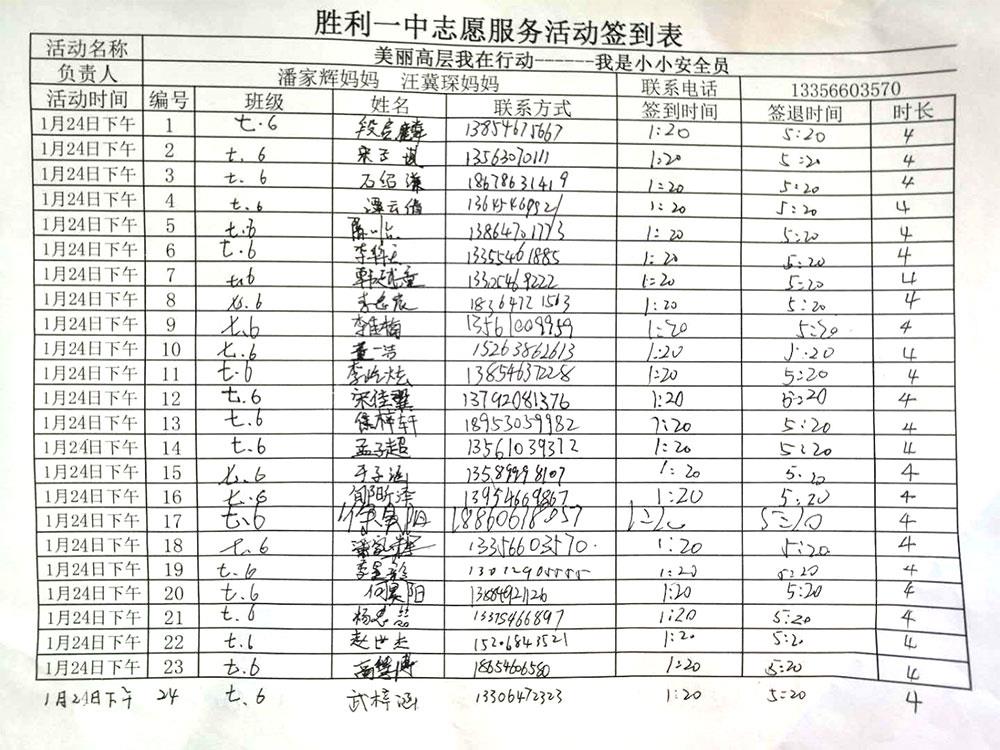 胜利一中志愿服务活动签到表
活动名称 美丽高层我在行动------我是小小安全员
负责人 潘家辉妈妈 汪冀琛妈妈 联系电话 13356603570
活动时间 编号 班级 姓名 联系方式 签到时间 签退时间 时长
1月24日下午 1 七.6 13854675667 1:20 5:20 4
1月24日下午 2 七.6 13563070111 1:20 5:20 4
1月24日下午 3 七.6 石绍谦 18678631419 1:20 5:20 4
1月24日下午 4 七.6 1:20 5:20 4
1月24日下午 5 七.6 13864701773 1:20 5:20 4
1月24日下午 6 七.6 13355461885 1:20 5:20 4
1月24日下午 7 七.6 13305469222 1:20 5:20 4
1月24日下午 8 七.6 18364721563 1:20 5:20 4
1月24日下午 9 七.6 李佳梅 13561009959 1:20 5:20 4
1月24日下午 10 七.6 董一浩 15263862613 1:20 5:20 4
1月24日下午 11 七.6 李屹炫 13854637228 1:20 5:20 4
1月24日下午 12 七.6 宋佳翼 13792081376 1:20 5:20 4
1月24日下午 13 七.6 徐梓轩 18953059982 1:20 5:20 4
1月24日下午 14 七.6 孟子超 13561039372 1:20 5:20 4
1月24日下午 15 七.6 于子涵 13589998107 1:20 5:20 4
1月24日下午 16 七.6 郇昕泽 13954669867 1:20 5:20 4
1月24日下午 17 七.6 徐昊阳 1:20 5:20 4
1月24日下午 18 七.6 潘家辉 13356603570 1:20 5:20 4
1月24日下午 19 七.6 1:20 5:20 4
1月24日下午 20 七.6 何昊阳 1:20 5:20 4
1月24日下午 21 七.6 13375466897 1:20 5:20 4
1月24日下午 22 七.6 赵世杰 15206843521 1:20 5:20 4
1月24日下午 23 七.6 1:20 5:20 4
1月24日下午 24 七.6 武梓涵 13306472323 1:20 5:20 4